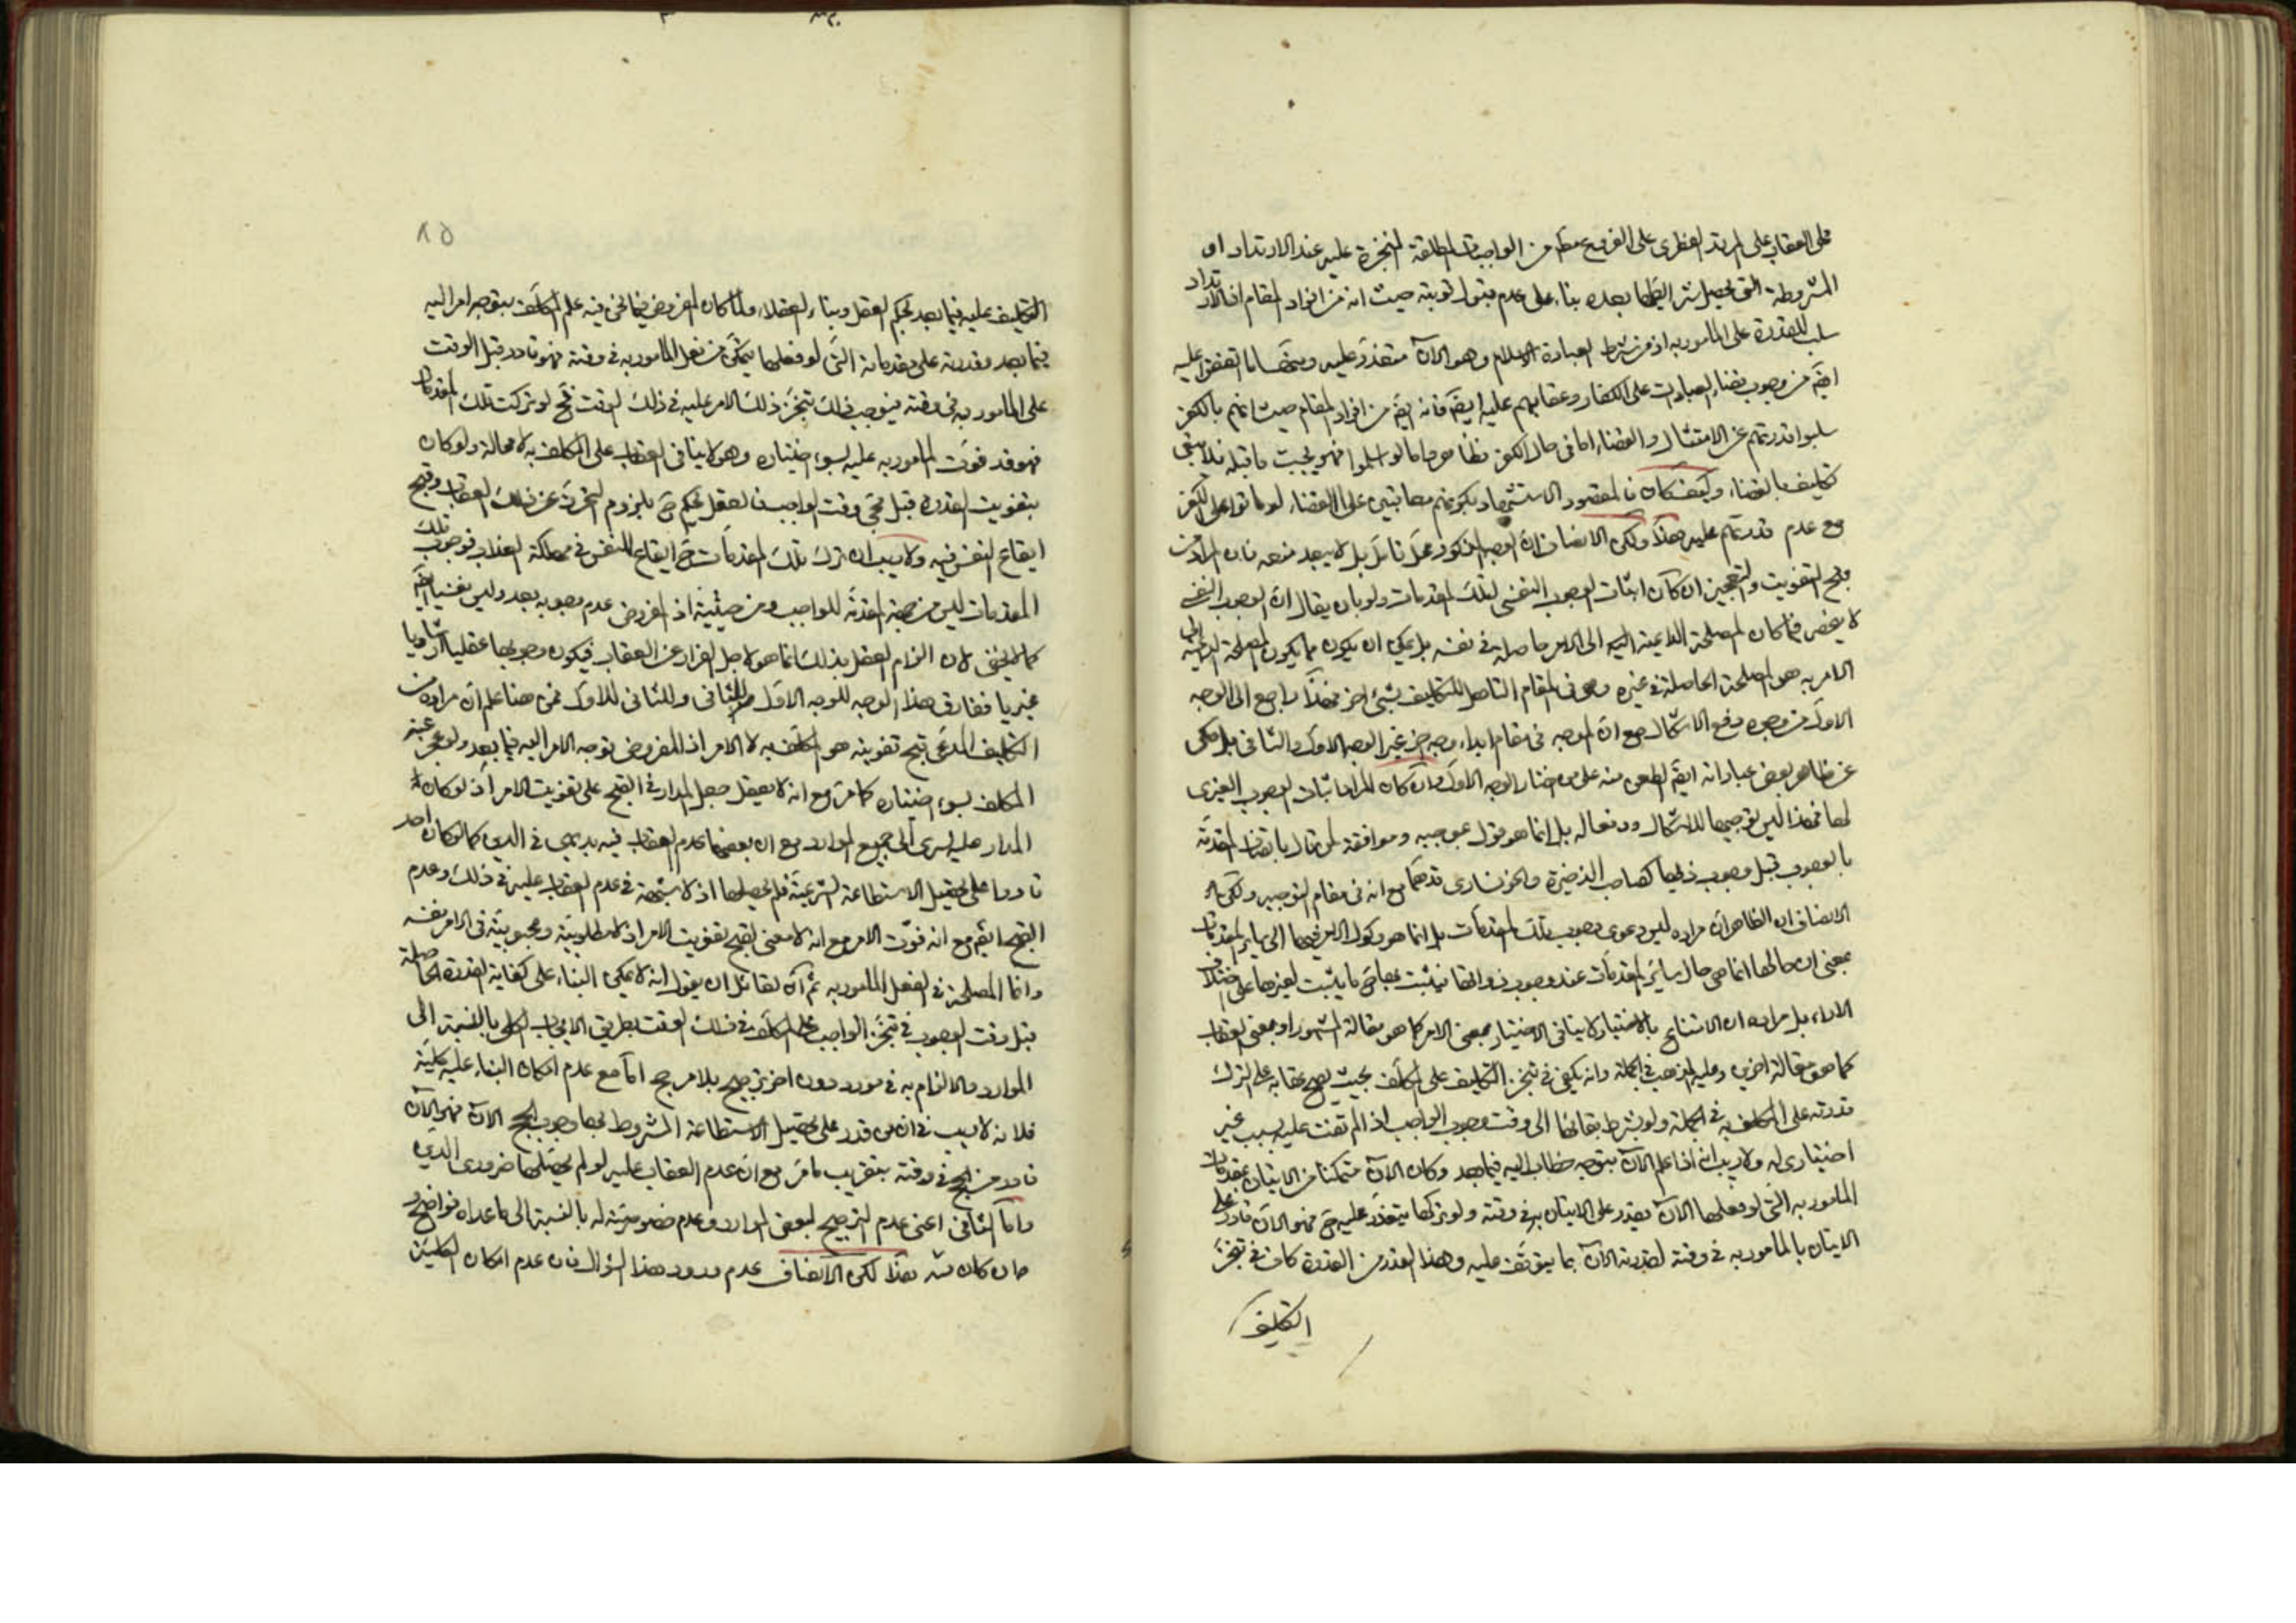 على العقاب على المرتد الفطرى على الفروع مط من الواجبات المطلقة المنجزة عليه عند الارتداد او
المشروطة التى تحصل شرائطها بعده بناء على عدم قبول توبته حيث انه من افراد المقام اذ الارتداد
سلب للقدرة على المامور به اذ من شرط العبادة الاسلام وهو الآن متعذر عليه ومنها ما اتفقوا عليه
ايضَ من وجوب قضاء العبادات على الكفار وعقابهم عليه ايضَ فانه ايضَ من افراد المقام حيث انهم بالكفر
سلبوا قدرتهم عن الامتثال والقضاء اما فى حال الكفر فظاهر واما لو اسلموا فهو يجبّ ما قبله فلا يبقى
تكليف بالقضاء وكيف كان فالمقصود الاستشهاد بكونهم معاقبين على القضاء لو ماتوا على الكفر
مع عدم قدرتهم عليه هذا ولكن الانصاف ان الوجه المذكور محل تامل بل لا يبعد منعه فان المراد من
قبح التفويت والتعجيز ان كان اثبات الوجوب النفسى لتلك المقدمات ولو بان يقال ان الوجوب النفسى
لا يختص فيما كان المصلحة الداعية اليه الى الامر حاصلة فى نفسه بل يمكن ان يكون مما يكون المصلحة الداعية الى
الامر به هو المصلحة الحاصلة فى غيره وهو فى المقام التاهل للتكليف بشىء اخر فهذا راجع الى الوجه
الاول من وجوه دفع الاشكال مع ان الموجه فى مقام ابداء وجه اخر غير الوجه الاول والثانى بل حكى
عن ظاهر بعض عباراته ايضَ الطعن منه على من اختار الوجه الاول وان كان المراد اثبات الوجوب الغيرى
لها فهذا ليس توجيها للاشكال ودفعا له بل انما هو قول بموجبه وموافقة لمن قال باتصاف المقدمة
بالوجوب قبل وجوب ذيها كصاحب الذخيرة والخونسارى قدهما مع انه فى مقام التوجيه ولكن
الانصاف ان الظاهر ان مراده ليس دعوى وجوب تلك المقدمات بل انما هو موكول الامر فيها الى ساير المقدمات
بمعنى ان حالها انما هى حال سائر المقدمات عند وجوب ذواتها فيثبت لها حَ ما يثبت لغيرها على اختلاف
الاراء بل مراده ان الامتناع بالاختيار لا ينافى الاختيار بمعنى الامر كما هو مقالة المشهور او بمعنى العقاب
كما هو مقالة اخرين وعليه المذهب فى الجملة وانه يكفى فى تنجز التكليف على المكلف بحيث يصح عقابه على الترك
قدرته على المكلف به فى الجملة ولو بشرط بقائها الى وقت وجوب الواجب اذا لم تفت عليه بسبب غير
اختيارى له ولا ريب انه اذا علم الآن بتوجه خطاب اليه فيما بعد وكان الآن متمكنا من الاتيان بمقدمات
المامور به التى لو فعلها الآن يقدر على الاتيان به فى وقته ولو تركها يتعذر عليه حَ فهو الآن قادر على
الاتيان بالمامور به فى وقته لقدرته الآن بما يتوقف عليه وهذا القدر من القدرة كاف فى تنجز
التكليف
٨٥
التكليف عليه فيما بعد بحكم العقل وبناء العقلاء ولما كان المفروض فيما نحن فيه علم المكلف بتوجه امر اليه
فيما بعد وقدرته على مقدماته التى لو فعلها يتمكن من فعل المامور به فى وقته فهو قادر قبل الوقت
على المامور به فى وقته فيوجب ذلك تنجز ذلك الامر عليه فى ذلك الوقت فحَ لو تركت تلك المقدمات
فهو قد فوت المامور به عليه بسوء اختياره وهو لا ينافى العقاب على المكلف به لا محالة ولو كان
بتفويت القدرة قبل مجئ وقت الواجب فالعقل يحكم حَ بلزوم التحرز عن ذلك العقاب وقبح
ايقاع النفس فيه ولا ريب ان ترك تلك المقدمات حَ ايقاع للنفس فى مهلكة العذاب فوجوب تلك
المقدمات ليس من جهة المقدمة للواجب ومن حيثيته اذ المفروض عدم وجوبه بعد وليس نفسيا ايضَ
كما لا يخفى لان الزام العقل بذلك انما هو لاجل الفرار عن العقاب فيكون وجوبها عقليا ارشاديا
غيريا ففارق هذا الوجه للوجه الاول والثانى وللثانى للاول فمن هنا علم ان مراده من
التكليف المدعى قبح تفويته هو المكلف به لا الامر اذ المفروض توجه الامر اليه فيما بعد ولو عجز عنه
المكلف بسوء اختياره كما مر مع انه لا يعقل جعل المدار فى القبح على تفويت الامر اذ لو كان
المدار عليه لسرى الى جميع الموارد مع ان بعضها عدم العقاب فيه بديهى فى الدين كما لو كان احد
قادرا على تحصيل الاستطاعة الشرعية فلم يحصلها اذ لا شبهة فى عدم العقاب عليه فى ذلك وعدم
القبح ايضَ مع انه فوت الامر مع انه لا معنى لقبح تفويت الامر اذ لا مطلوبية ومحبوبية فى الامر نفسه
وانما المصلحة فى الفعل المامور به ثم ان لقائل ان يقول انه لا يمكن البناء على كفاية القدرة الحاصلة
قبل وقت الوجوب فى تنجز الواجب على المكلف فى ذلك الوقت بطريق الايجاب الكلى بالنسبة الى
الموارد والالتزام به فى مورد دون اخر ترجيح بلا مرجح اما مع عدم امكان البناء عليه كلية
فلانه لا ريب فى ان من قدر على تحصيل الاستطاعة المشروط بها وجوب الحج الآن فهو الآن
قادر من الحج فى وقته بتقريب ما مر مع ان عدم العقاب عليه لو لم يحصلها ضرورى الدين
واما الثانى اعنى عدم الترجيح لبعض الموارد وعدم خصوصية له بالنسبة الى ما عداه فواضح
هذا لكن الانصاف عدم ورود هذا السؤال فان عدم امكان الكلية